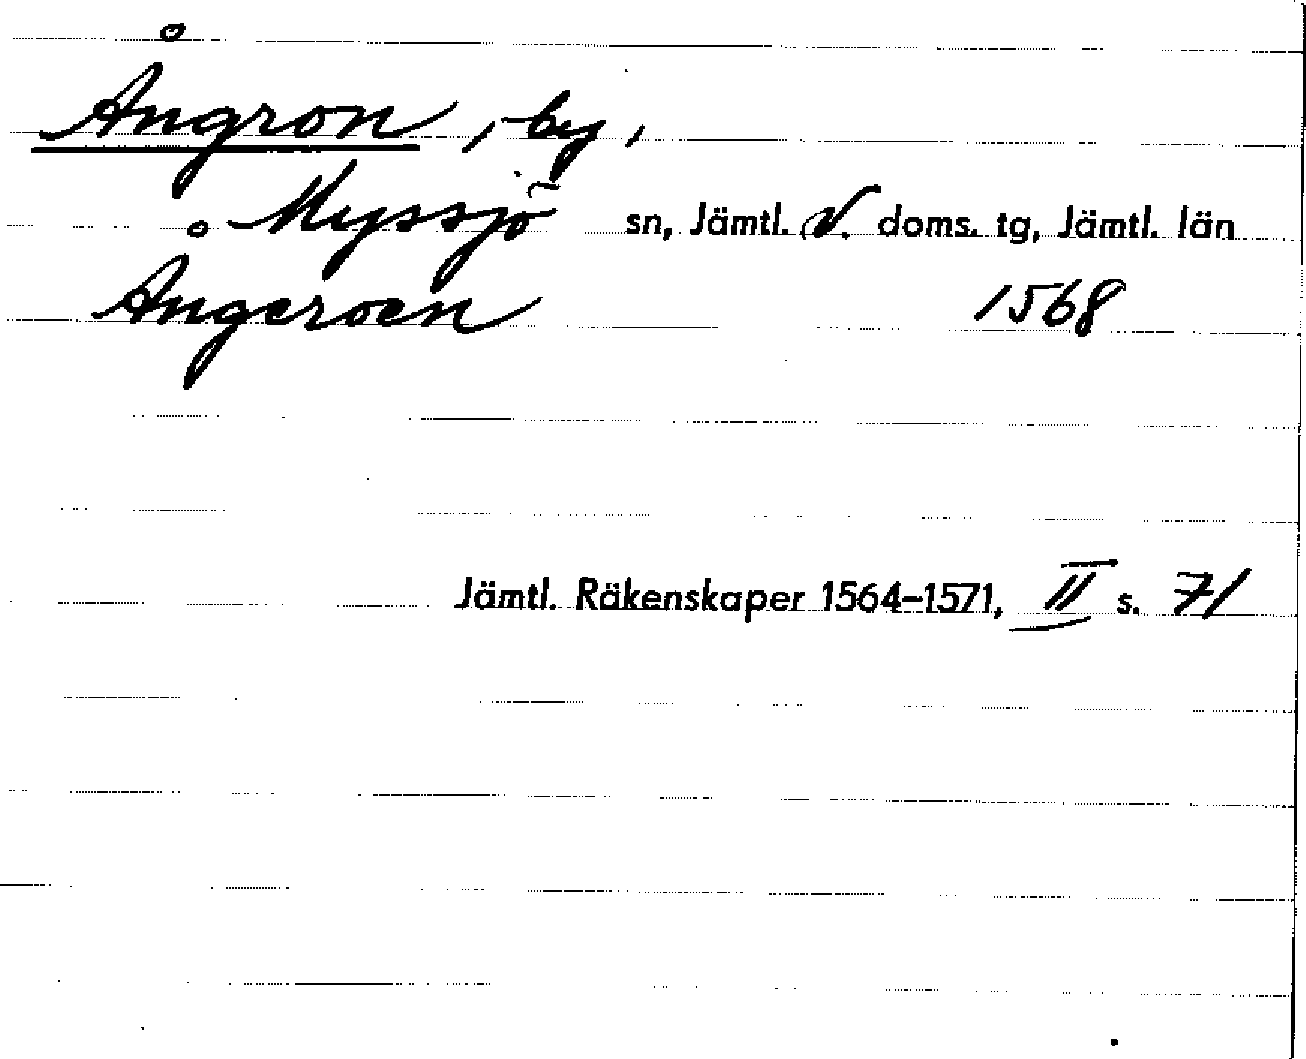 Ångron, by,
Myssjö sn, Jämtl. V. doms. tg, Jämtl. län
Ångeroen 1568
Jämtl. Räkenskaper 1564–1571, II s. 71